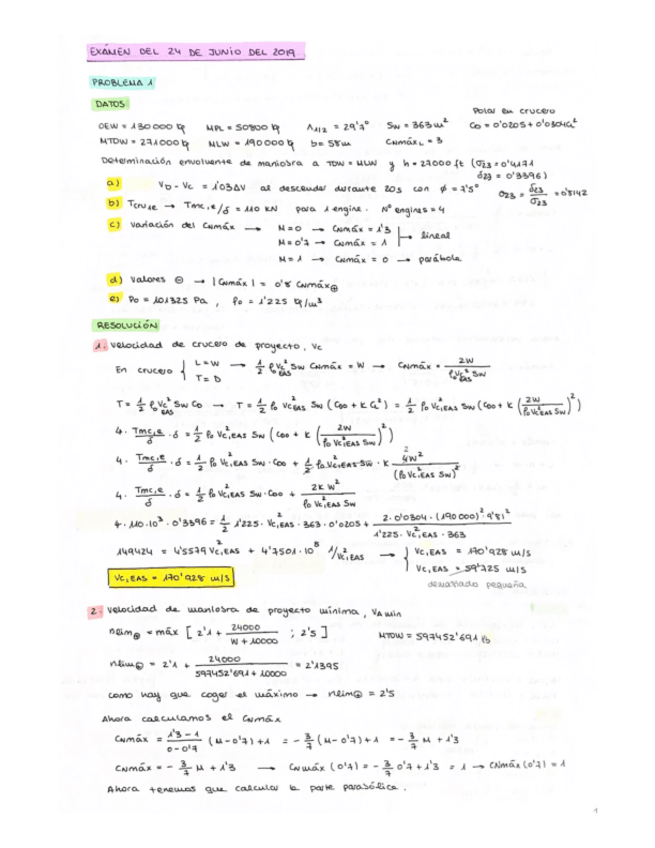 EXÁMEN DEL 24 DE JUNIO DEL 2019
PROBLEMA 1
DATOS
Polar en crucero
OEW = 130000 kg MPL = 50800 kg Λ1/2 = 29'7° Sw = 363 m² CD = 0'0205 + 0'0304 CL²
MTOW = 271000 kg MLW = 190000 kg b = 58m CNmáxL = 3
Determinación envolvente de maniobra a TOW = MLW y h = 27000 ft (σ23 = 0'4171
δ23 = 0'3396)
a) VD - VC = 1'03ΔV al descender durante 20s con φ = 7'5° θ23 = δ23/σ23 = 0'8142
b) Tcruise → Tmc,e/δ = 110 kN para 1 engine. Nº engines = 4
c) Variación del CNmáx → M = 0 → CNmáx = 1'3
M = 0'7 → CNmáx = 1 → lineal
M = 1 → CNmáx = 0 → parábola
d) Valores ⊖ → |CNmáx| = 0'8 CNmáx⊕
e) P0 = 101325 Pa, ρ0 = 1'225 kg/m³
RESOLUCIÓN
1. Velocidad de crucero de proyecto, VC
En crucero { L = W → 1/2 ρ0 VC²EAS Sw CNmáx = W → CNmáx = 2W/(ρ0 VC²EAS Sw)
T = D
T = 1/2 ρ0 VC²EAS Sw CD → T = 1/2 ρ0 VC²EAS Sw (CD0 + K CL²) = 1/2 ρ0 VC²,EAS Sw (CD0 + K (2W/(ρ0 VC²,EAS Sw))²)
4 · Tmc,e/δ · δ = 1/2 ρ0 VC²,EAS Sw (CD0 + K (2W/(ρ0 VC²,EAS Sw))²)
4 · Tmc,e/δ · δ = 1/2 ρ0 VC²,EAS Sw · CD0 + 1/2 ρ0 VC²,EAS Sw · K 4W²/(ρ0 VC²,EAS Sw)²
4 · Tmc,e/δ · δ = 1/2 ρ0 VC²,EAS Sw · CD0 + 2K W²/(ρ0 VC²,EAS Sw)
4 · 110 · 10³ · 0'3396 = 1/2 1'225 · VC²,EAS · 363 · 0'0205 + 2 · 0'0304 · (190000)² · 9'81²/(1'225 · VC²,EAS · 363)
149424 = 4'5579 VC²,EAS + 4'7501 · 10⁸ 1/VC²,EAS → { VC,EAS = 170'928 m/s
VC,EAS = 59'725 m/s
demasiado pequeña
VC,EAS = 170'928 m/s
2. Velocidad de maniobra de proyecto mínima, VAmin
nlim⊕ = máx [ 2'1 + 24000/(W + 10000) ; 2'5 ] MTOW = 597452'691 lb
nlim⊕ = 2'1 + 24000/(597452'691 + 10000) = 2'1395
como hay que coger el máximo → nlim⊕ = 2'5
Ahora calculamos el CNmáx
CNmáx = (1'3 - 1)/(0 - 0'7) (M - 0'7) + 1 = - 3/7 (M - 0'7) + 1 = - 3/7 M + 1'3
CNmáx = - 3/7 M + 1'3 → CNmáx (0'7) = - 3/7 0'7 + 1'3 = 1 → CNmáx (0'7) = 1
Ahora tenemos que calcular la parte parabólica.
1